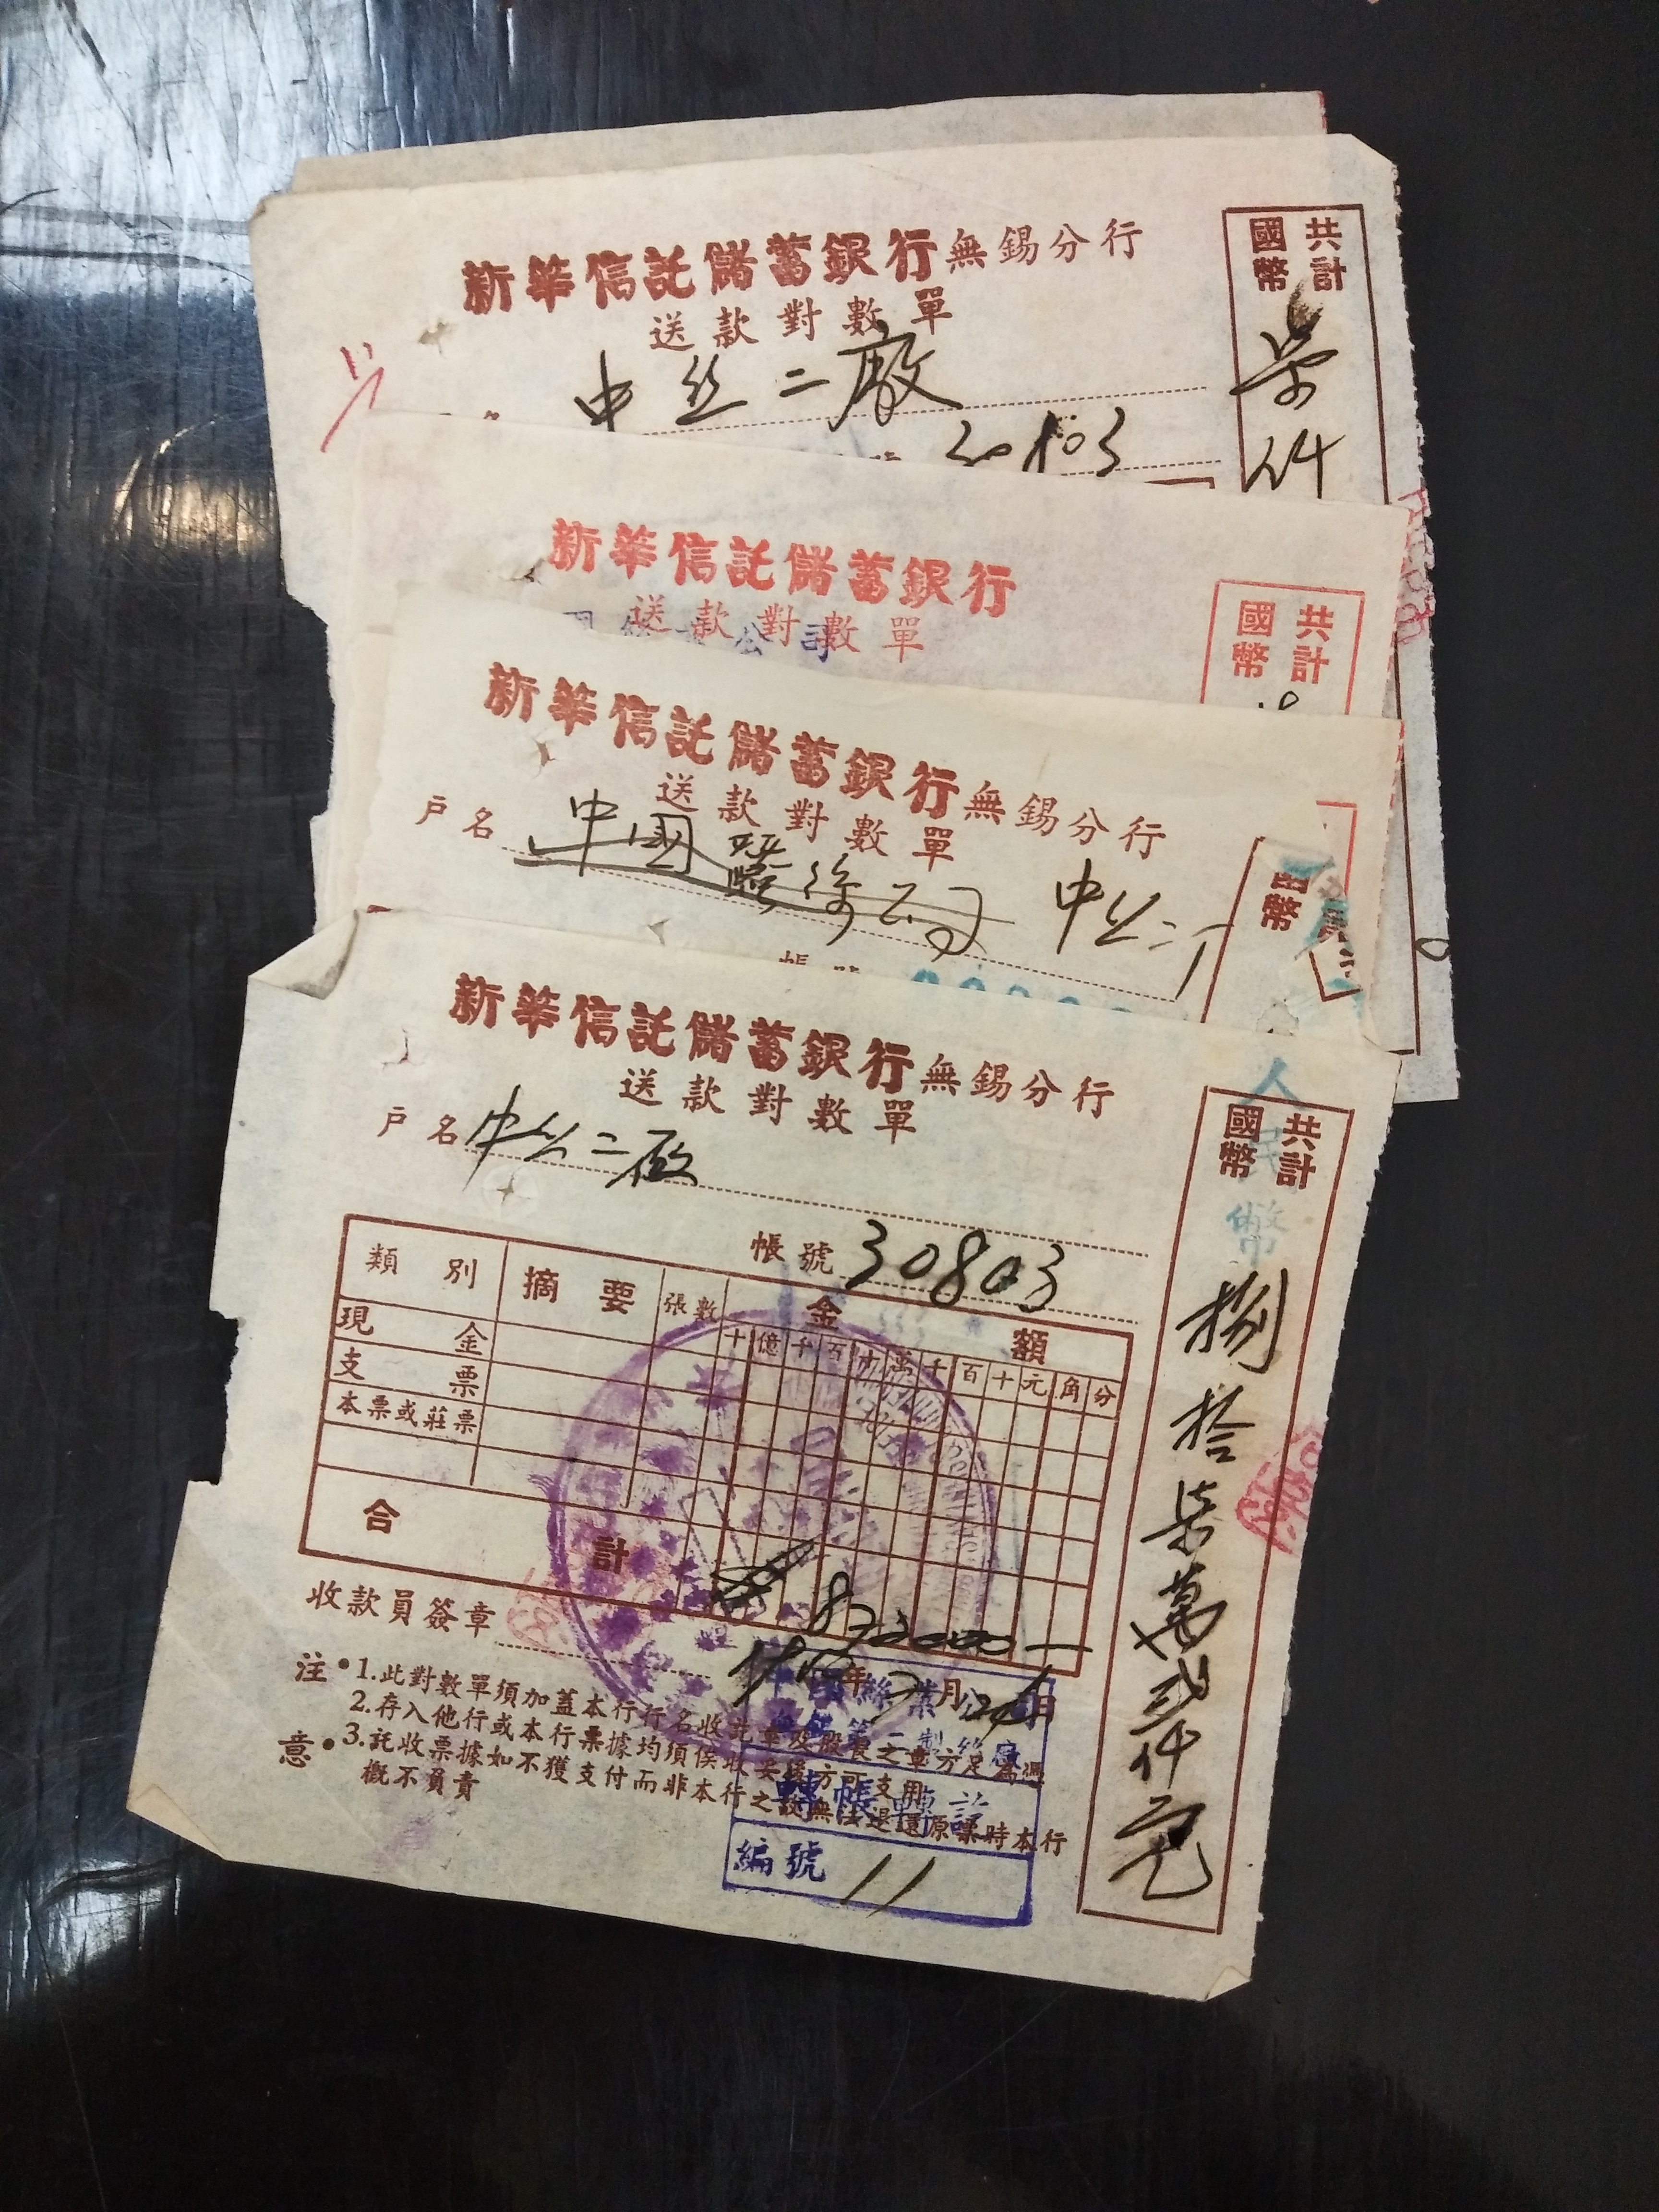 新華信託儲蓄銀行無錫分行
送款對數單
共計
國幣
中丝二廠
柒
新華信託儲蓄銀行
送款對數單
公司
共計
國幣
新華信託儲蓄銀行無錫分行
送款對數單
戶名 中國蠶絲公司 中丝二
國幣
新華信託儲蓄銀行無錫分行
送款對數單
戶名 中丝二廠
帳號 30803
共計
國幣
人民幣
捌拾柒萬弍仟元
類別 摘要 張數 金額
十億千百十萬千百十元角分
現金
支票
本票或莊票
合計
872000一
收款員簽章
年 月 日
注意
1.此對數單須加蓋本行行名收訖章及股長之章方足為憑
2.存入他行或本行票據均須俟收妥後方可支用
3.託收票據如不獲支付而非本行之故無法退還原票時本行
概不負責
編號 11